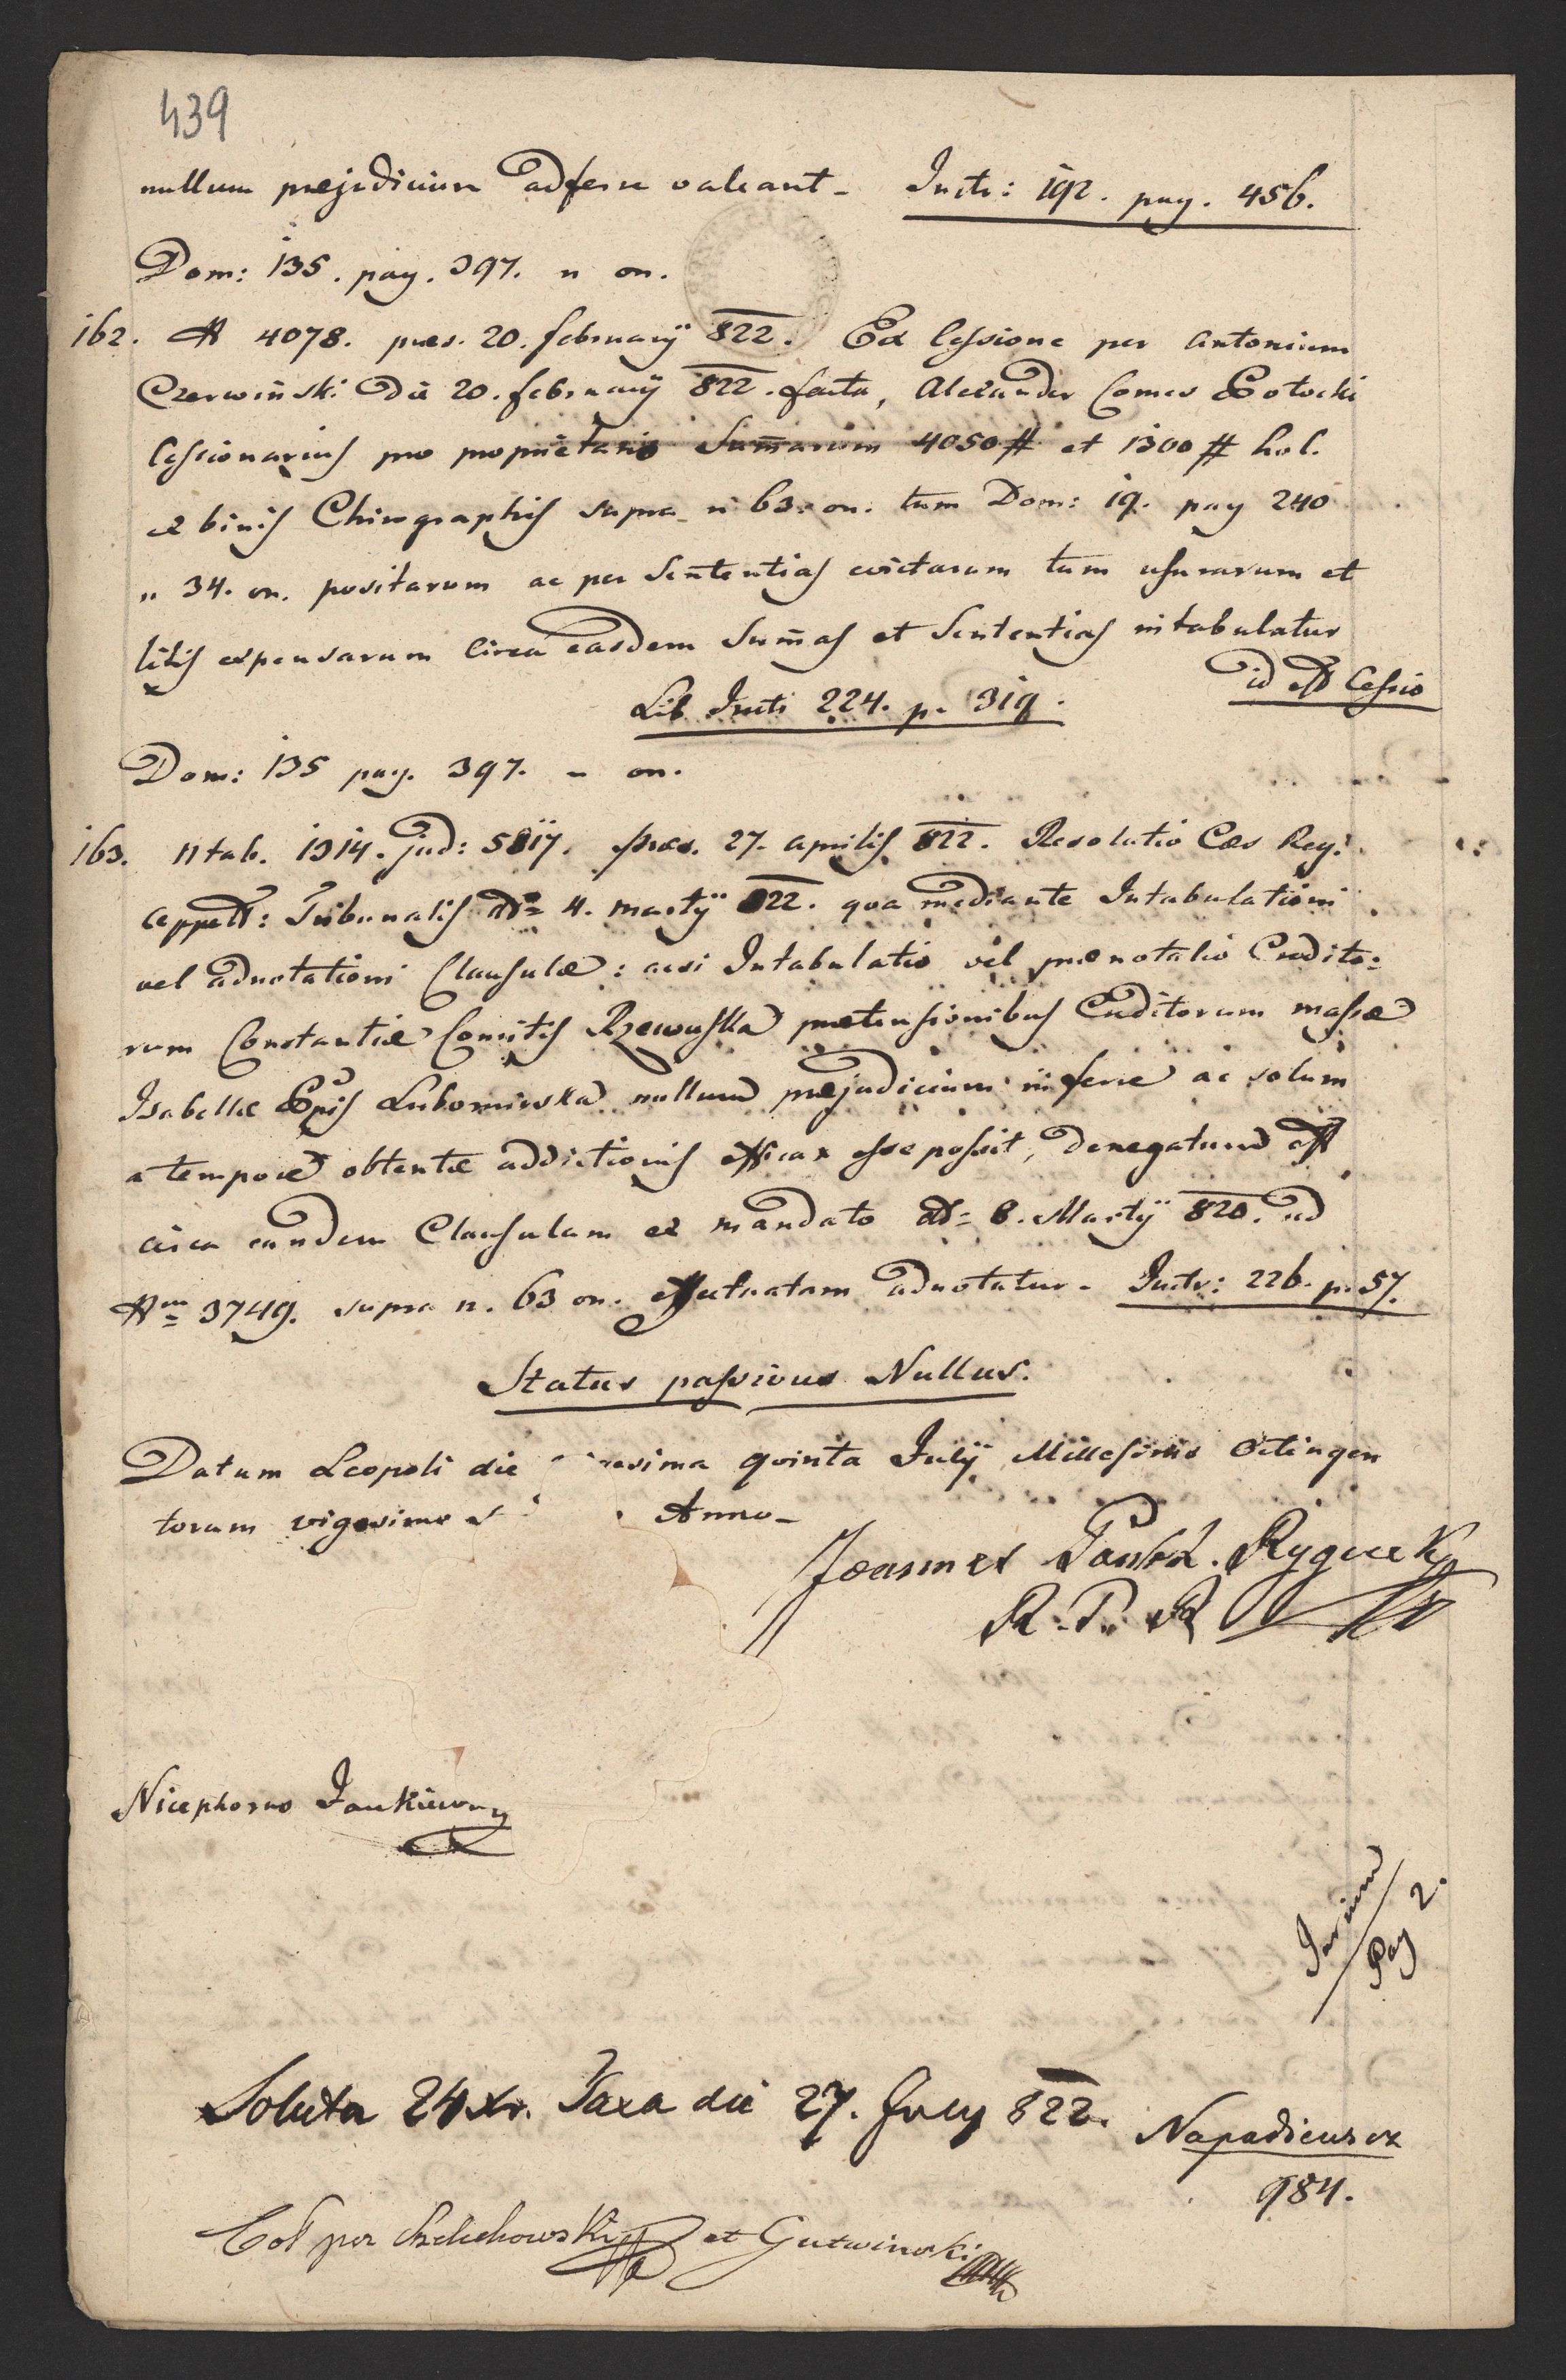 439
nullum præjudicium adferre valeant - Instr: 192. pag. 456.
Dom: 135. pag. 397. n on.
162. N 4078. præs. 20. februarÿ 822. Ex Cessione per Antonium
Czerwiński die 20. februarÿ 822. facta, Alexander Comes Potocki
Cessionarius pro proprietario Sum̄arum 4050 # et 1300 # hol.
ex binis Chirographis supra n 63. on. tum Dom: 19. pag 240
n 34. on. positarum ac per Sententias evictarum tum usurarum et
litis expensarum circa easdem Sum̄as et Sententias intabulatur
id est Cessio
Lib Instr 224. p. 319.
Dom: 135 pag. 397. n on.
163. N tab. 1314. jud: 5817. præs. 27. Aprilis 822. Resolutio Cæs Reg:
Appell: Tribunalis dto 4. Martÿ 822. qva mediante Intabulationi
vel adnotationi Clausulæ: acsi Intabulatio vel prænotatio Credito:
rum Constantiæ Comitis Rzewuska prætensionibus Creditorum massæ
Isabellæ Pris Lubomirska nullum præjudicium inferre ac solum
a tempore obtentæ addictionis efficax esse possit, denegatum est
circa eandem Clausulam ex mandato dto 8. Martÿ 820. ad
Num 3749. supra n. 63 on. effectuatam adnotatur - Instr: 226. p. 57.
Status passivus Nullus.
Datum Leopoli die quinta Julÿ Millesimo Octingen
torum vigesimo Anno -
Joannes
R. P. R
Nicephorus Jankiewicz
Pag 2.
Soluta 24 xr. Taxa die 27. July 822.
984.
Col per et Gutwinski